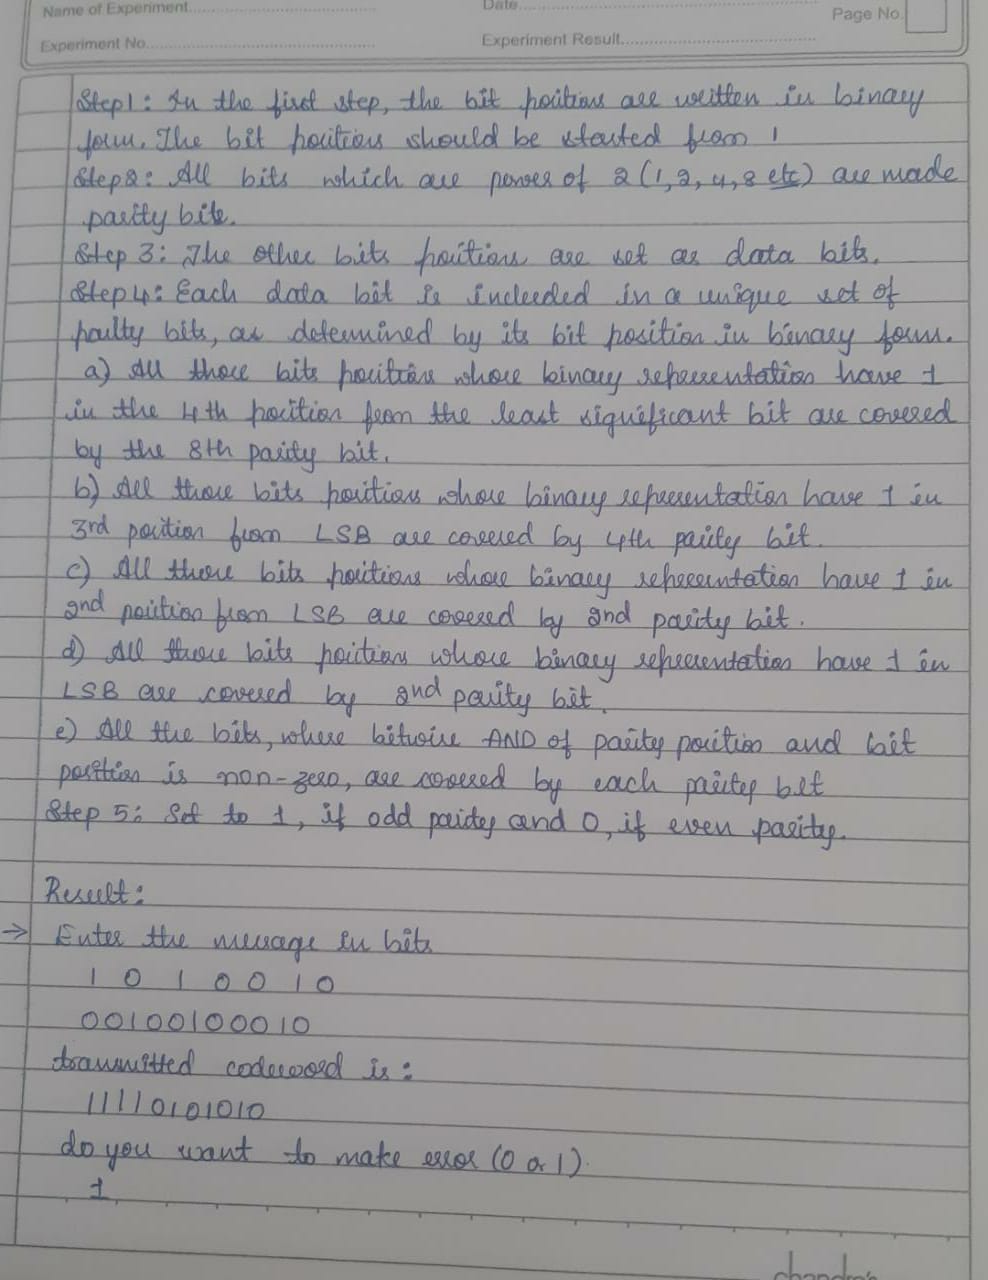 Name of Experiment
Date
Page No.
Experiment No.
Experiment Result
Step1: In the first step, the bit positions are written in binary
form. The bit positions should be started from 1
Step2: All bits which are powers of 2 (1, 2, 4, 8 etc) are made
parity bits.
Step 3: The other bits positions are set as data bits.
Step4: Each data bit is included in a unique set of
parity bits, as determined by its bit position in binary form.
a) All those bits positions whose binary representation have 1
in the 4th position from the least significant bit are covered
by the 8th parity bit.
b) All those bits positions whose binary representation have 1 in
3rd position from LSB are covered by 4th parity bit.
c) All those bits positions whose binary representation have 1 in
2nd position from LSB are covered by 2nd parity bit.
d) All those bits positions whose binary representation have 1 in
LSB are covered by 2nd parity bit.
e) All the bits, where bitwise AND of parity position and bit
position is non-zero, are covered by each parity bit
Step 5: Set to 1, if odd parity and 0, if even parity.
Result:
→ Enter the message in bits
1 0 1 0 0 1 0
00100100010
transmitted codeword is:
11110101010
do you want to make error (0 or 1).
1